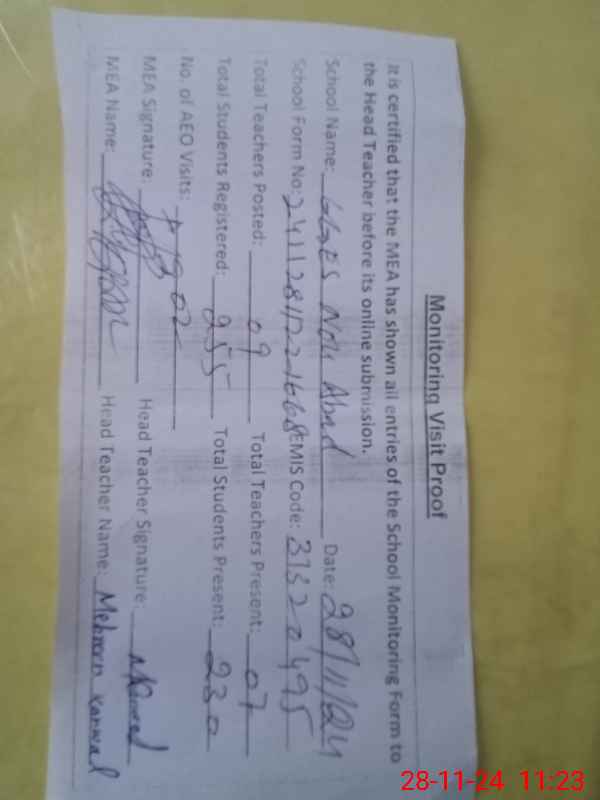 Monitoring Visit Proof
It is certified that the MEA has shown all entries of the School Monitoring Form to
the Head Teacher before its online submission.
School Name: GGES Nou Abad Date: 28/11/24
School Form No: EMIS Code: 31320495
Total Teachers Posted: 09 Total Teachers Present: 07
Total Students Registered: 255 Total Students Present: 230
No. of AEO Visits: 02
MEA Signature: Head Teacher Signature:
MEA Name: Head Teacher Name: Kanwal
28-11-24 11:23